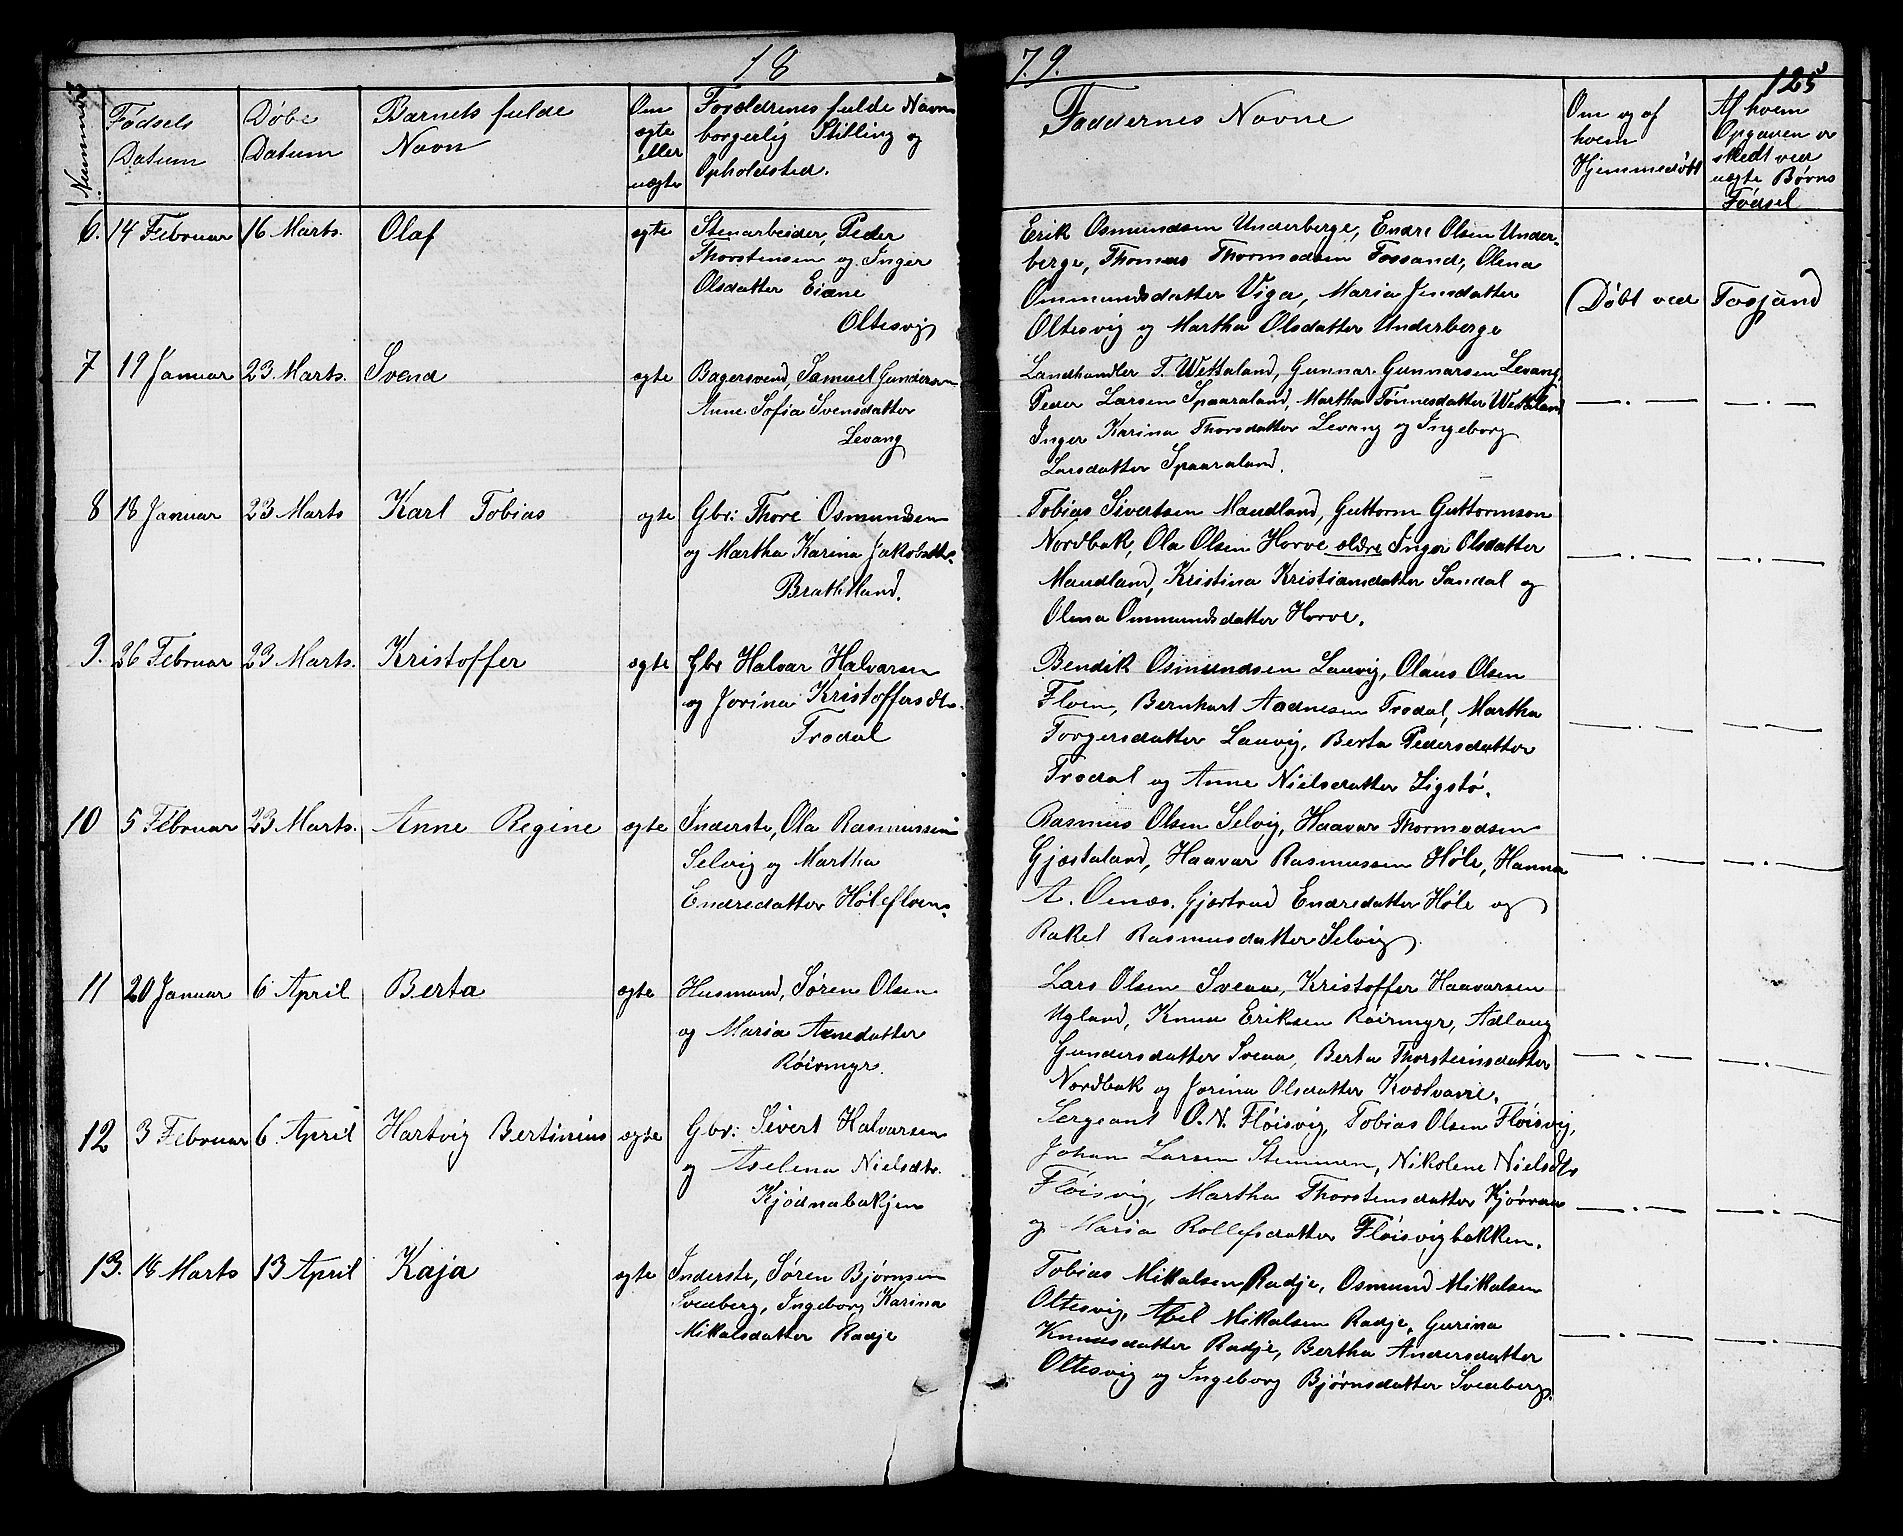 18
79.
125
Nummer
Fødsels Datum
Døbe Datum
Barnets fulde Navn
Om ægte eller uægte
Forældrenes fulde Navn borgerlig Stilling og Opholdsted.
Faddernes Navne
Om og af hvem Hjemmedøbt
Af hvem Opgaven er skedt ved uægte Børns Fødsel
6. 14 Februar 16 Marts. Olaf ægte
Stenarbeider, Peder
Thorstensen og Inger
Olsdatter Eiane
Oltesvig
Erik Osmundsen Underberge, Endre Olsen Under-
berge, Thomas Thormodsen Fossand, Olena
Ommundsdatter Viga, Maria Jensdatter
Oltesvig og Martha Olsdatter Underberge
Døbt ved Fosjand
7 19 Januar 23 Marts. Svend ægte
Bagersvend, Samuel Gundersen
Anne Sofia Svensdatter
Levang
Landhandler T. Wetteland, Gunnar Gunnarsen Levang
Peder Larsen Spaaraland, Martha Tønnesdatter Wetteland
Inger Karina Thorsdatter Levang og Ingeborg
Larsdatter Spaaraland.
8 18 Januar 23 Marts Karl Tobias ægte
Gbr: Thore Osmundsen
og Martha Karina Jakobsdtr.
Bratteland.
Tobias Sivertsen Maudland, Guttorm Guttormson
Nordbak, Ola Olsen Horve ældre Inger Olsdatter
Maudland, Kristina Kristiansdatter Sandal og
Olena Ommundsdatter Horve.
9. 26 Februar 23 Marts. Kristoffer ægte
Gbr Halvar Halvarsen
og Jorina Kristoffersdtr.
Trodal
Bendik Osmundsen Lauvig, Olaus Olsen
Floen, Bernhart Aadnesen Trodal, Martha
Torgersdatter Lauvig, Berta Pedersdatter
Trodal og Anne Nielsdatter Ligstø.
10 5 Februar 23 Marts. Anne Regine ægte
Inderste, Ola Rasmussen
Selvig og Martha
Endredatter Hølefloen.
Rasmus Olsen Selvig, Haavar Thormodsen
Gjæstaland, Haavar Rasmussen Høle, Hanna
A. Oenæs. Gjærtrud Endredatter Høle og
Rakel Rasmusdatter Selvig.
11 20 Januar 6 April Berta ægte
Husmand, Søren Olsen
og Maria Arnedatter
Røirmyr.
Lars Olsen Sveaa, Kristoffer Haavarsen
Ugland, Knud Eriksen Røirmyr, Adlaug
Gundersdatter Sveaa, Berta Thorsteinsdatter
Nordbak og Jorina Olsdatter Kvælvane.
12 3 Februar 6. April Hartvig Bertinius ægte
Gbr: Sivert Halvarsen
og Aselena Nielsdtr.
Kjødnabakjen
Sergeant O. N. Fløisvig, Tobias Olsen Fløisvig,
Johan Larsen Stemmen, Nikolene Nielsdtr
Fløisvig, Martha Thorstensdatter Kjørnaa
og Maria Rollefsdatter Fløisvigbakken.
13. 18 Marts 13 April Kaja ægte
Inderste, Søren Bjørnsen
Sveaberg, Ingeborg Karina
Mikalsdatter Radje
Tobias Mikalsen Radje, Osmund Mikalsen
Oltesvig, Abel Mikalsen Radje, Gurina
Knudsdatter Radje, Bertha Andersdatter
Oltesvig og Ingeborg Bjørnsdatter Sveaberg.